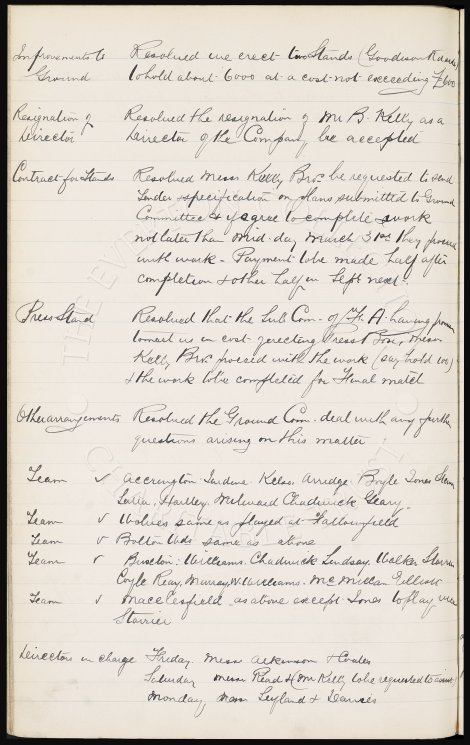 Improvements to Resolved we erect two Stands (Goodison Road side)
Ground to hold about 6000 at a cost not exceeding £600
Resignation of Resolved the resignation of Mr B. Kelly as a
Director Director of the Company be accepted
Contract for Stands Resolved Messrs Kelly Bros. be requested to send
tender & specification on plans submitted to Ground
Committee & if agree to complete work
not later than mid-day March 31st they proceed
with work - Payment to be made half after
completion & other half in Sept next.
Press Stand Resolved that the Sub Com. of F. A. having
to meet us in cost of erecting Press Box, Messrs
Kelly Bros. proceed with the work (say hold 100)
& the work to be completed for Final match
Other arrangements Resolved the Ground Com. deal with any further
questions arising on this matter
Team v Accrington. Jardine. Kelso. Arridge. Boyle. Jones.
Latta. Hartley. Milward Chadwick Geary.
Team v Wolves same as played at Fallowfield
Team v Bolton Wds same as above
Team v Buxton: Williams. Chadwick Lindsay. Walker Starrier
Coyle Reay, Murray, W. Williams. McMillan Elliott
Team v Macclesfield as above except Jones to play vice
Starrier
Directors in charge Friday. Messrs Atkinson & Coates
Saturday Messrs Read & (Mr Kelly to be requested to assist)
Monday, Messrs Leyland & Davies